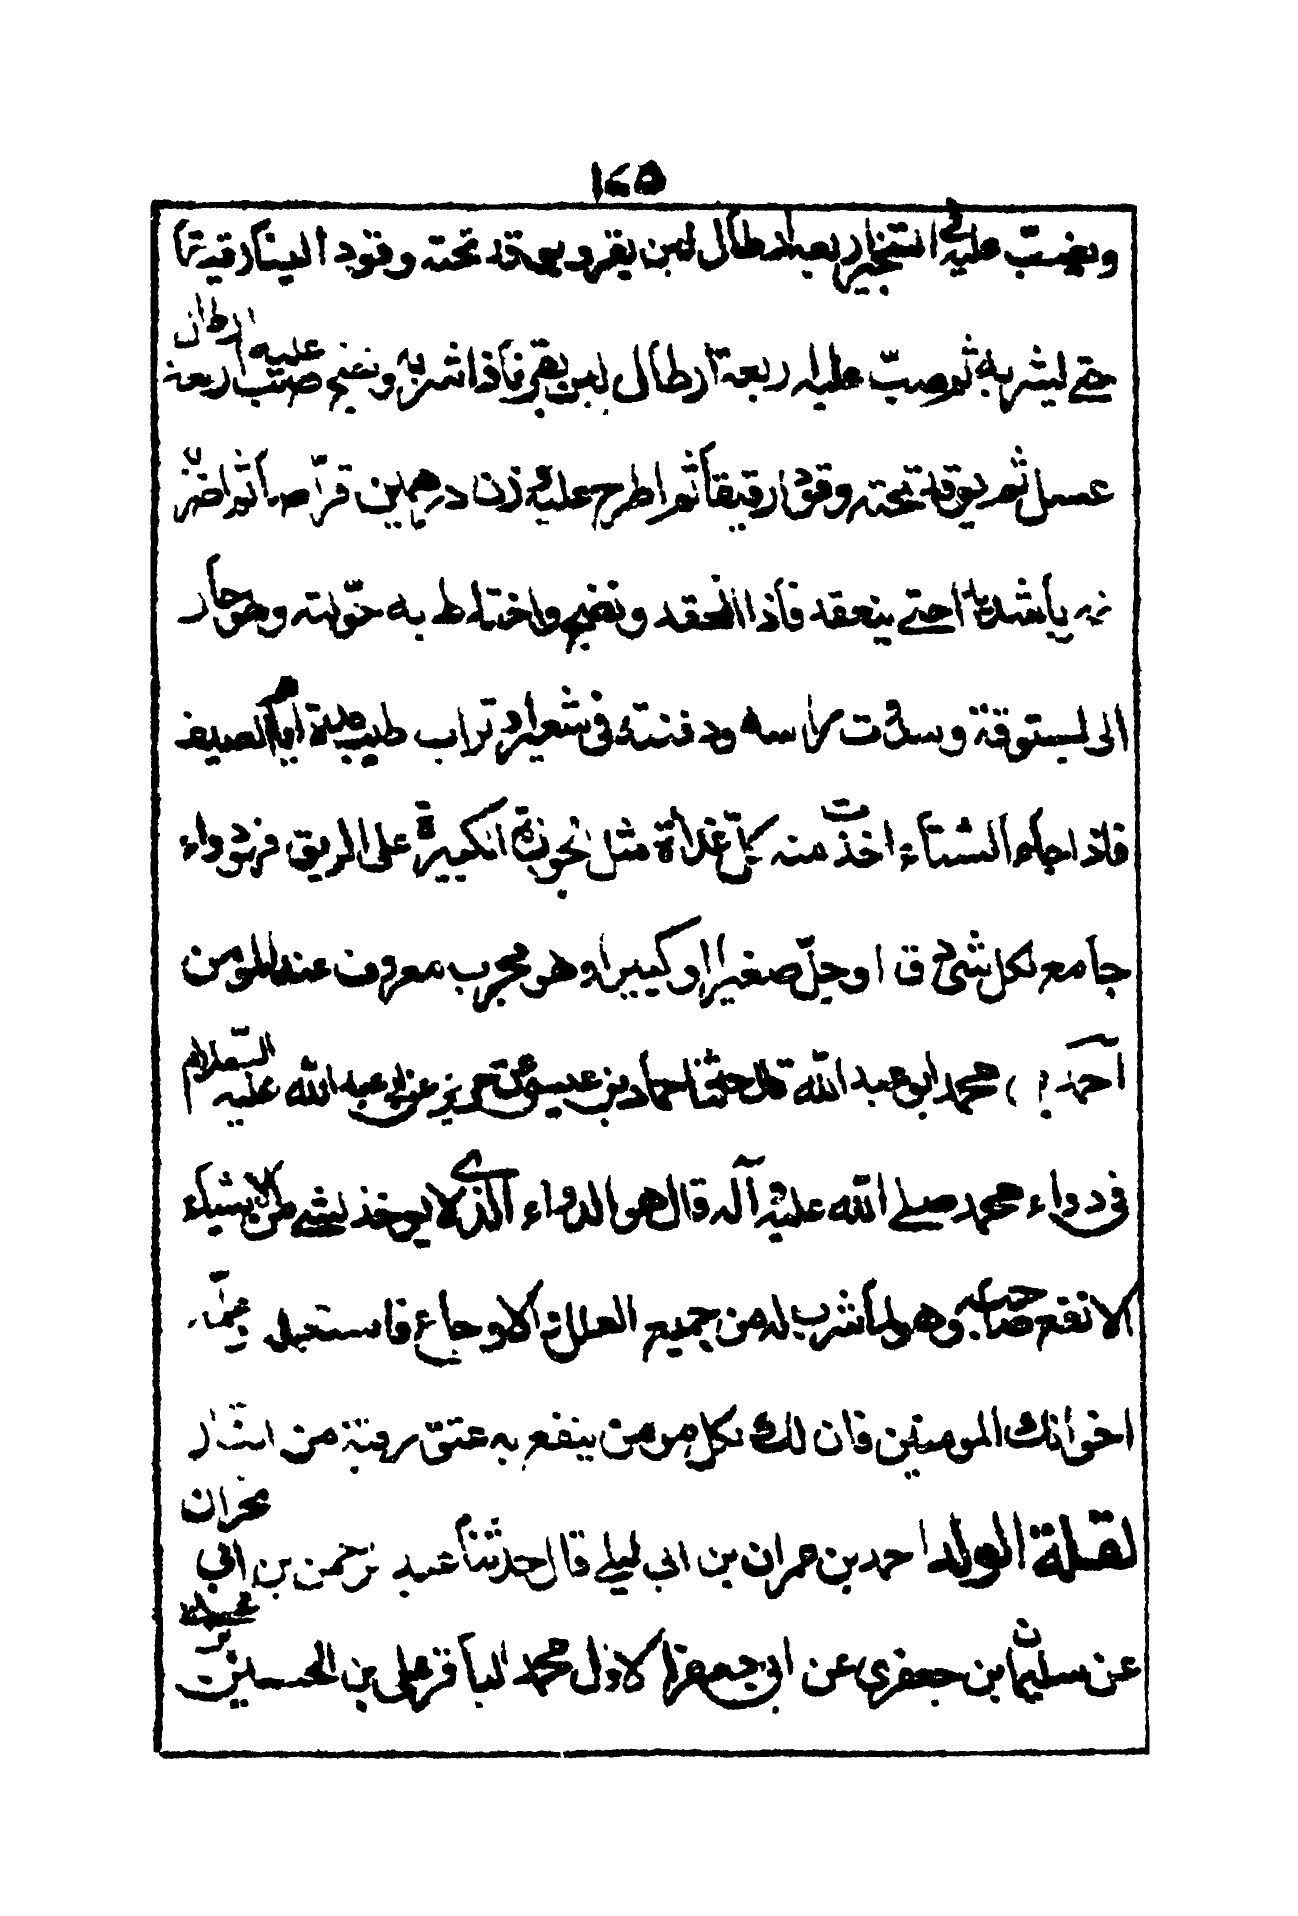 ١٢٥
ويصب عليه في الطنجير اربعة ارطال لبن بقر ويوقد تحته وقودا لينا رقيقا
حتى يشربه ثم صب عليه اربعة ارطال لبن بقر فاذا شربه ونضج صب عليه اربعة ارطال
عسل ثم يوقد تحته وقودا رقيقا ثم اطرح عليه وزن درهمين قراصا ثم اضربه
ضربا شديدا حتى ينعقد فاذا انعقد ونضج واختلط به حولته وهو حار
الى بستوقة وسددت راسه ودفنته في شعير او تراب طيب مدة ايام الصيف
فاذا جاء الشتاء اخذت منه كل غداة مثل الجوزة الكبيرة على الريق فهو دواء
جامع لكل شئ دق او جل صغير او كبير وهو مجرب معروف عند المومنين
احمد بن محمد ابو عبد الله قال حدثنا حماد بن عيسى عن حريز عن ابي عبد الله عليه السلام
في دواء محمد صلى الله عليه وآله قال هو الدواء الذي لا يوخذ لشئ من الاشياء
الا نفع صاحبه وهو لما شرب له من جميع العلل والاوجاع فاستعمله وعلمه
اخوانك المومنين فان لك بكل مومن ينتفع به عتق رقبة من النار
لقلة الولد احمد بن عمران بن ابي ليلى قال حدثنا عبد الرحمن بن ابي نجران
عن سليمان بن جعفري عن ابي جعفر الاول محمد الباقر علي بن الحسين